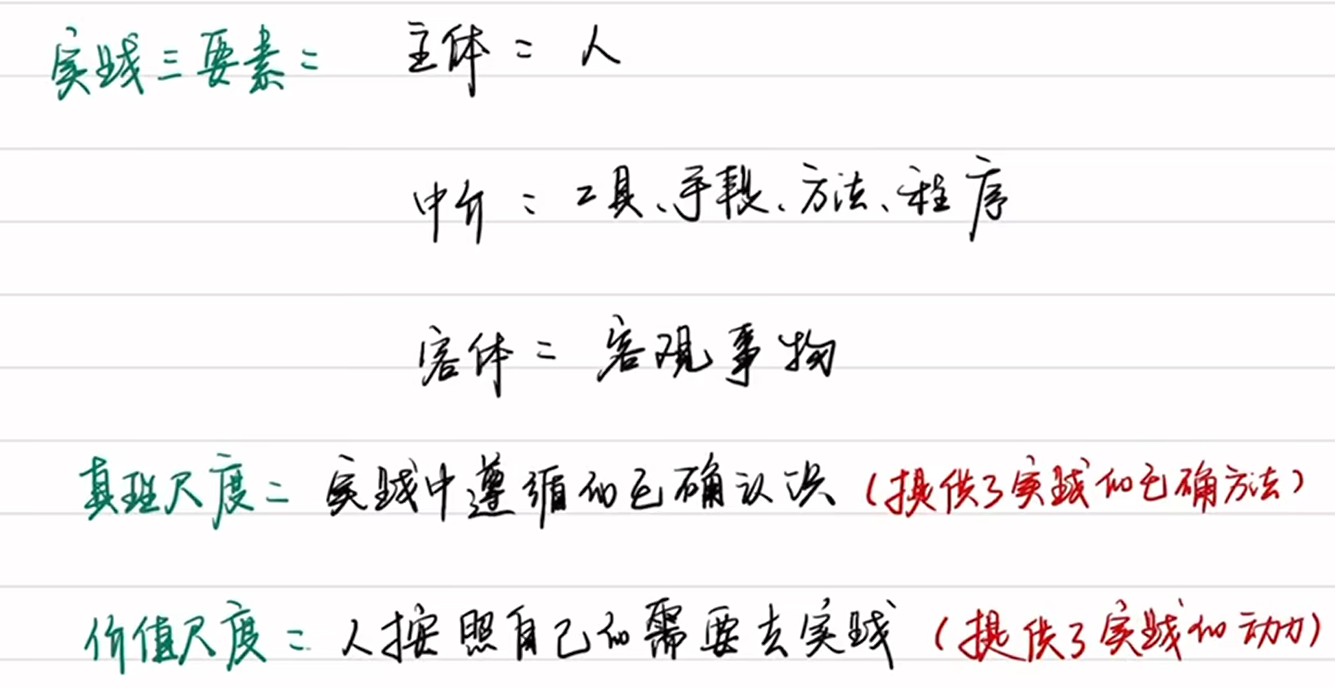 实践三要素: 主体: 人
中介: 工具、手段、方法、程序
客体: 客观事物
真理尺度: 实践中遵循的正确认识 (提供了实践的正确方法)
价值尺度: 人按照自己的需要去实践 (提供了实践的动力)